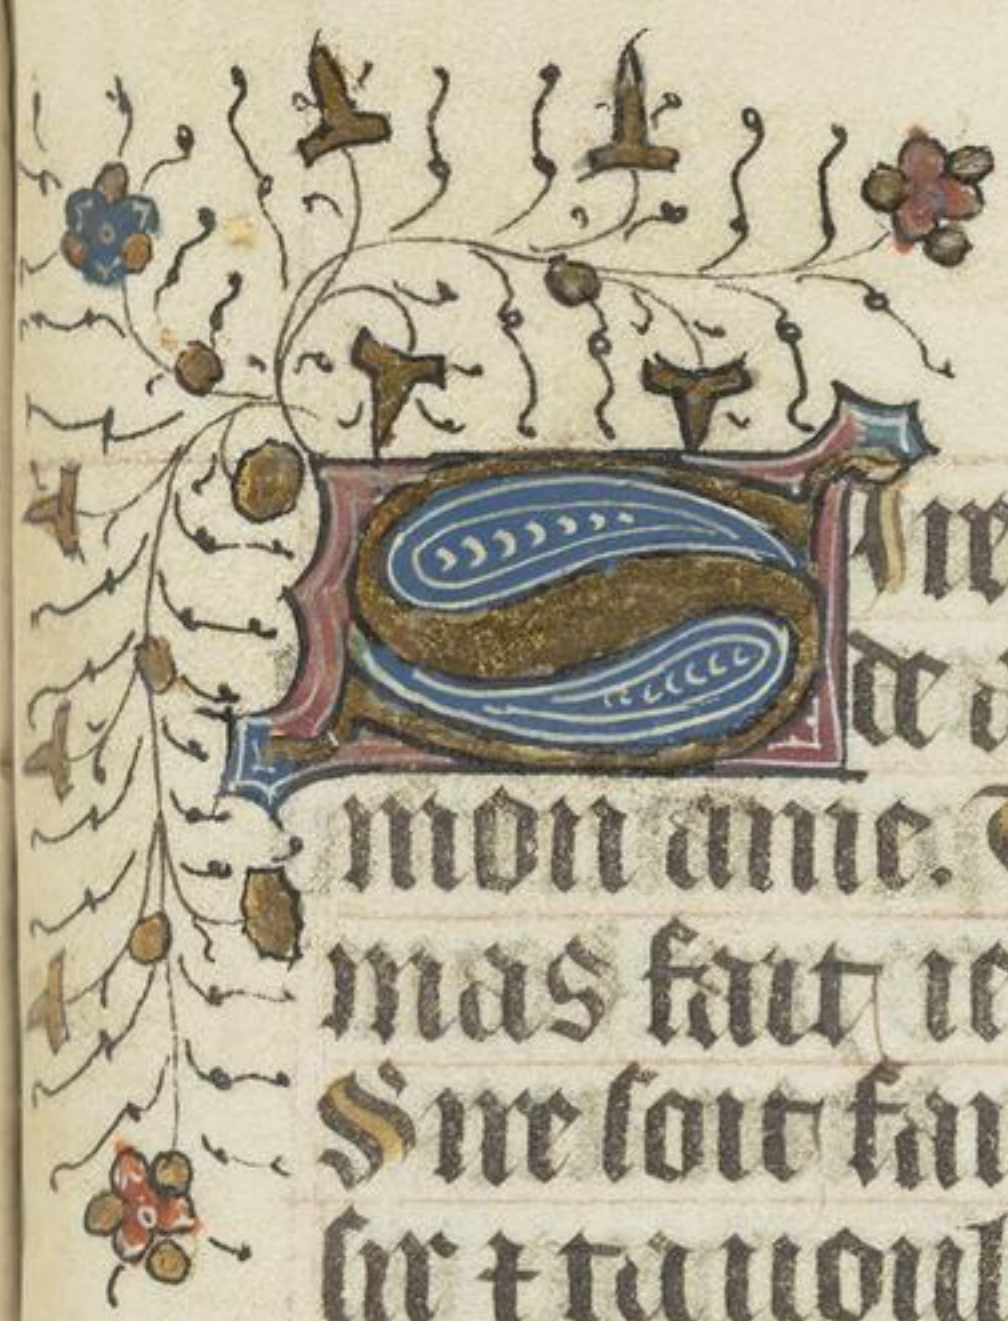 SIre
de a
mon ame. T
mas fait ie
Sire soit fai
sir ⁊ ta uoul